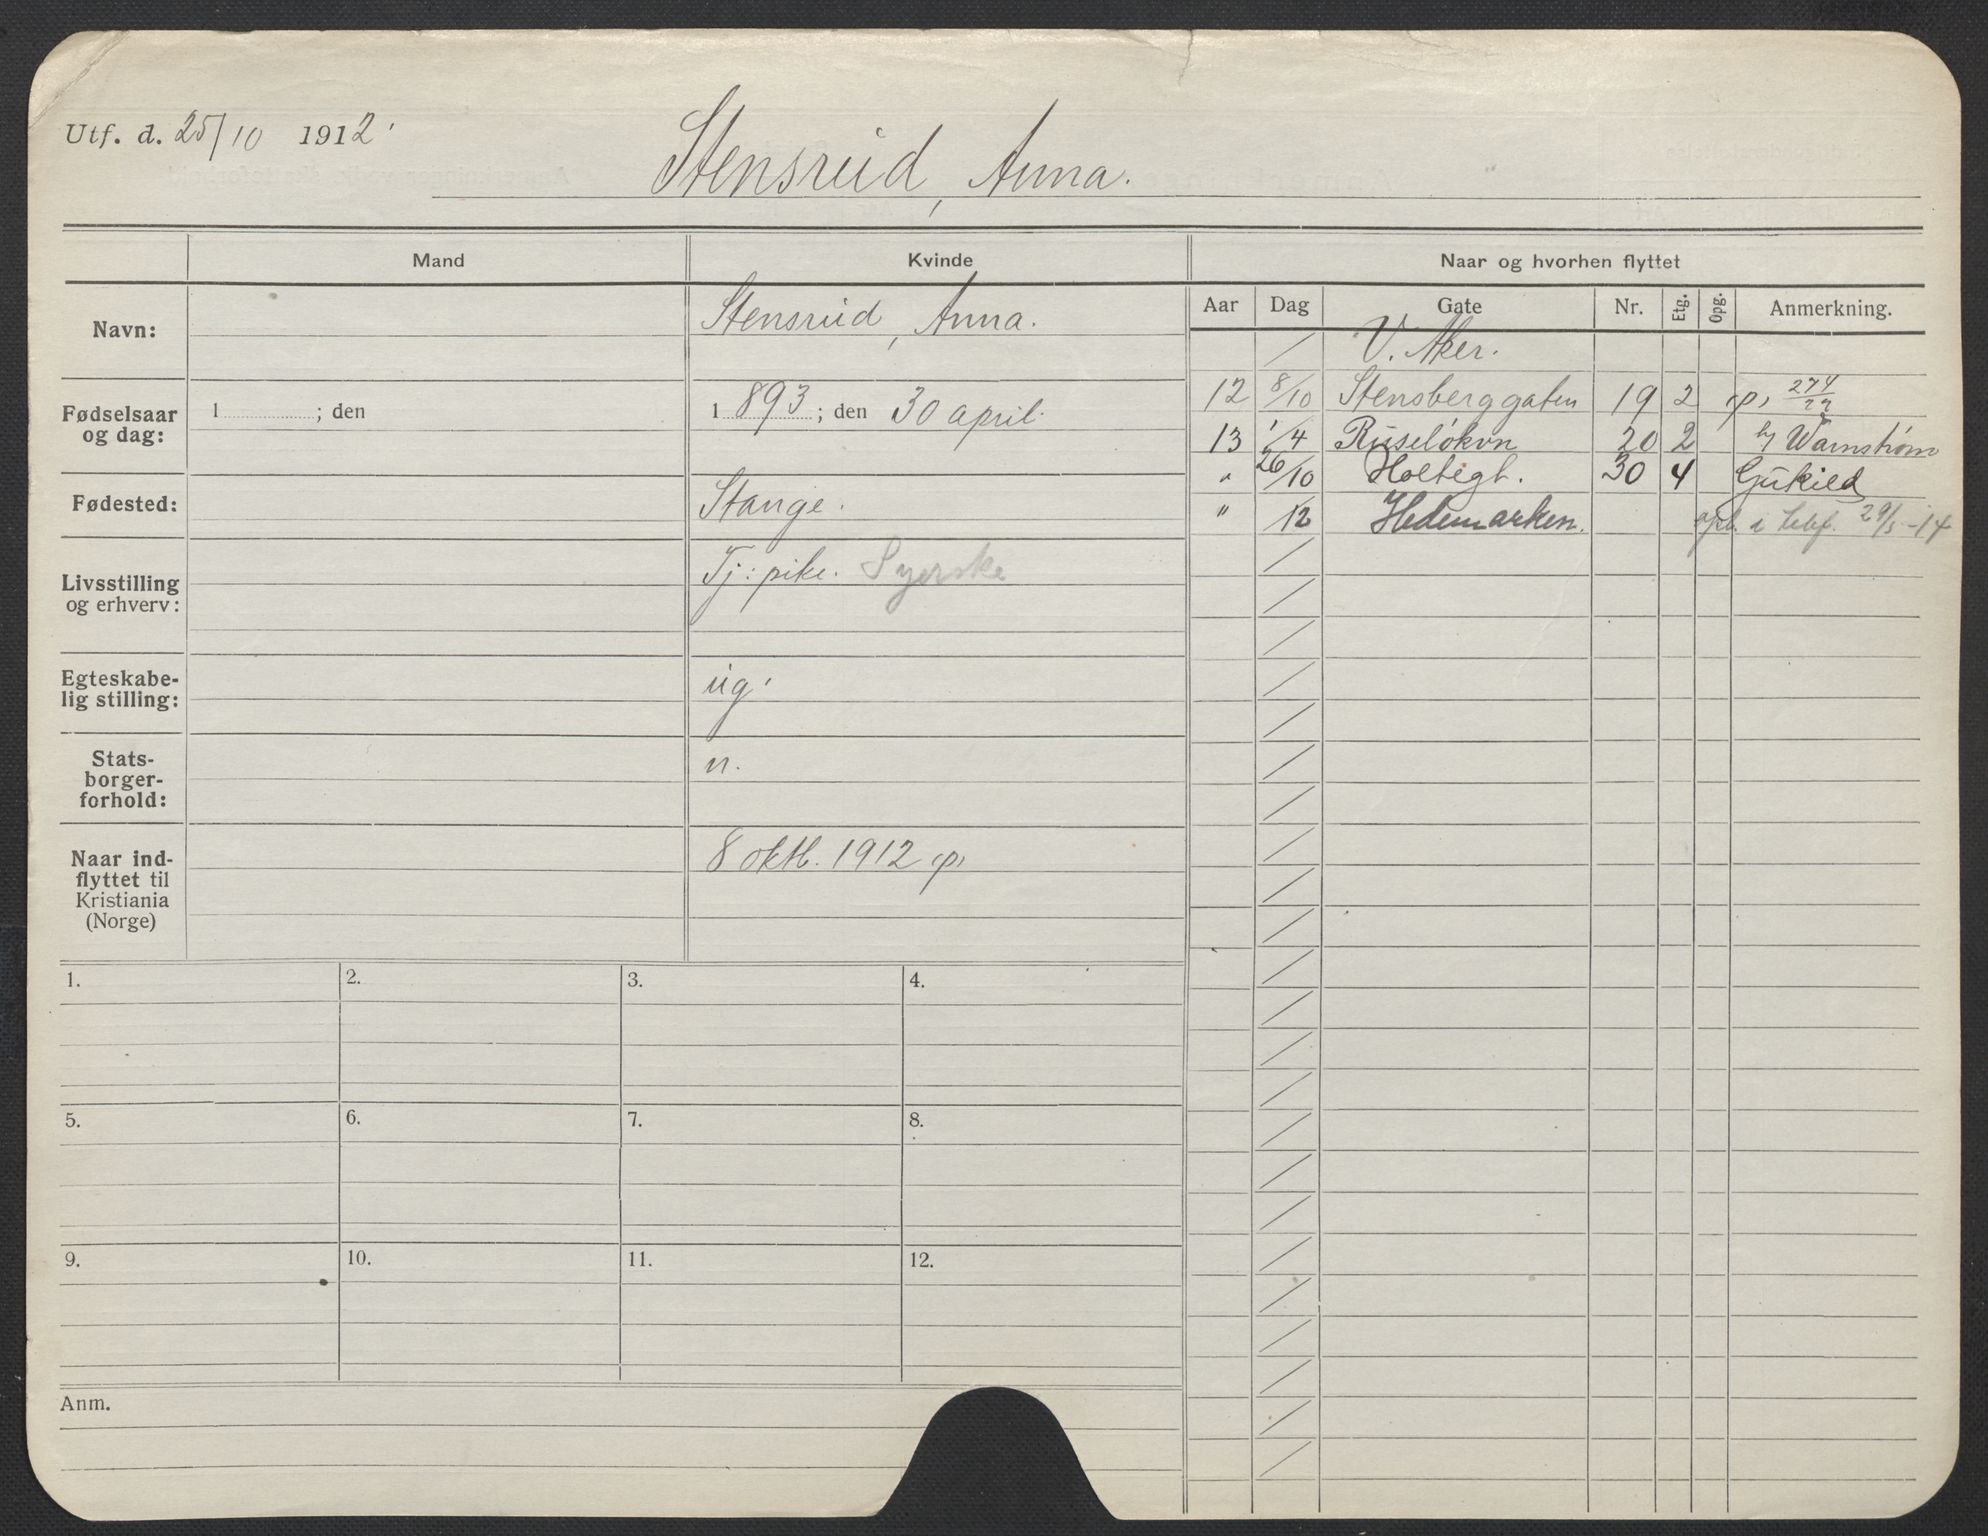 Utf. d. 25/10 1912
Stensrud, Anna.
Mand
Kvinde
Naar og hvorhen flyttet
Navn:
Stensrud, Anna.
Fødselsaar og dag:
1 ; den
1893; den 30 april.
Fødested:
Stange.
Livsstilling og erhverv:
Tj: pike. Syerske
Egteskabe-
lig stilling:
ug.
Stats-
borger-
forhold:
n.
Naar ind-
flyttet til
Kristiania
(Norge)
8 oktb. 1912 p
Aar Dag Gate Nr. Etg. Opg. Anmerkning.
/ V. Aker.
12 8/10 Stensberggaten 19 2 p, 274/22
13 1/4 Ruseløkvn 20 2 hj Warnstrøm
" 26/10 Holtegt. 30 4 Gukild
" /12 Hedemarken. i 29/5-14
1. 2. 3. 4.
5. 6. 7. 8.
9. 10. 11. 12.
Anm.